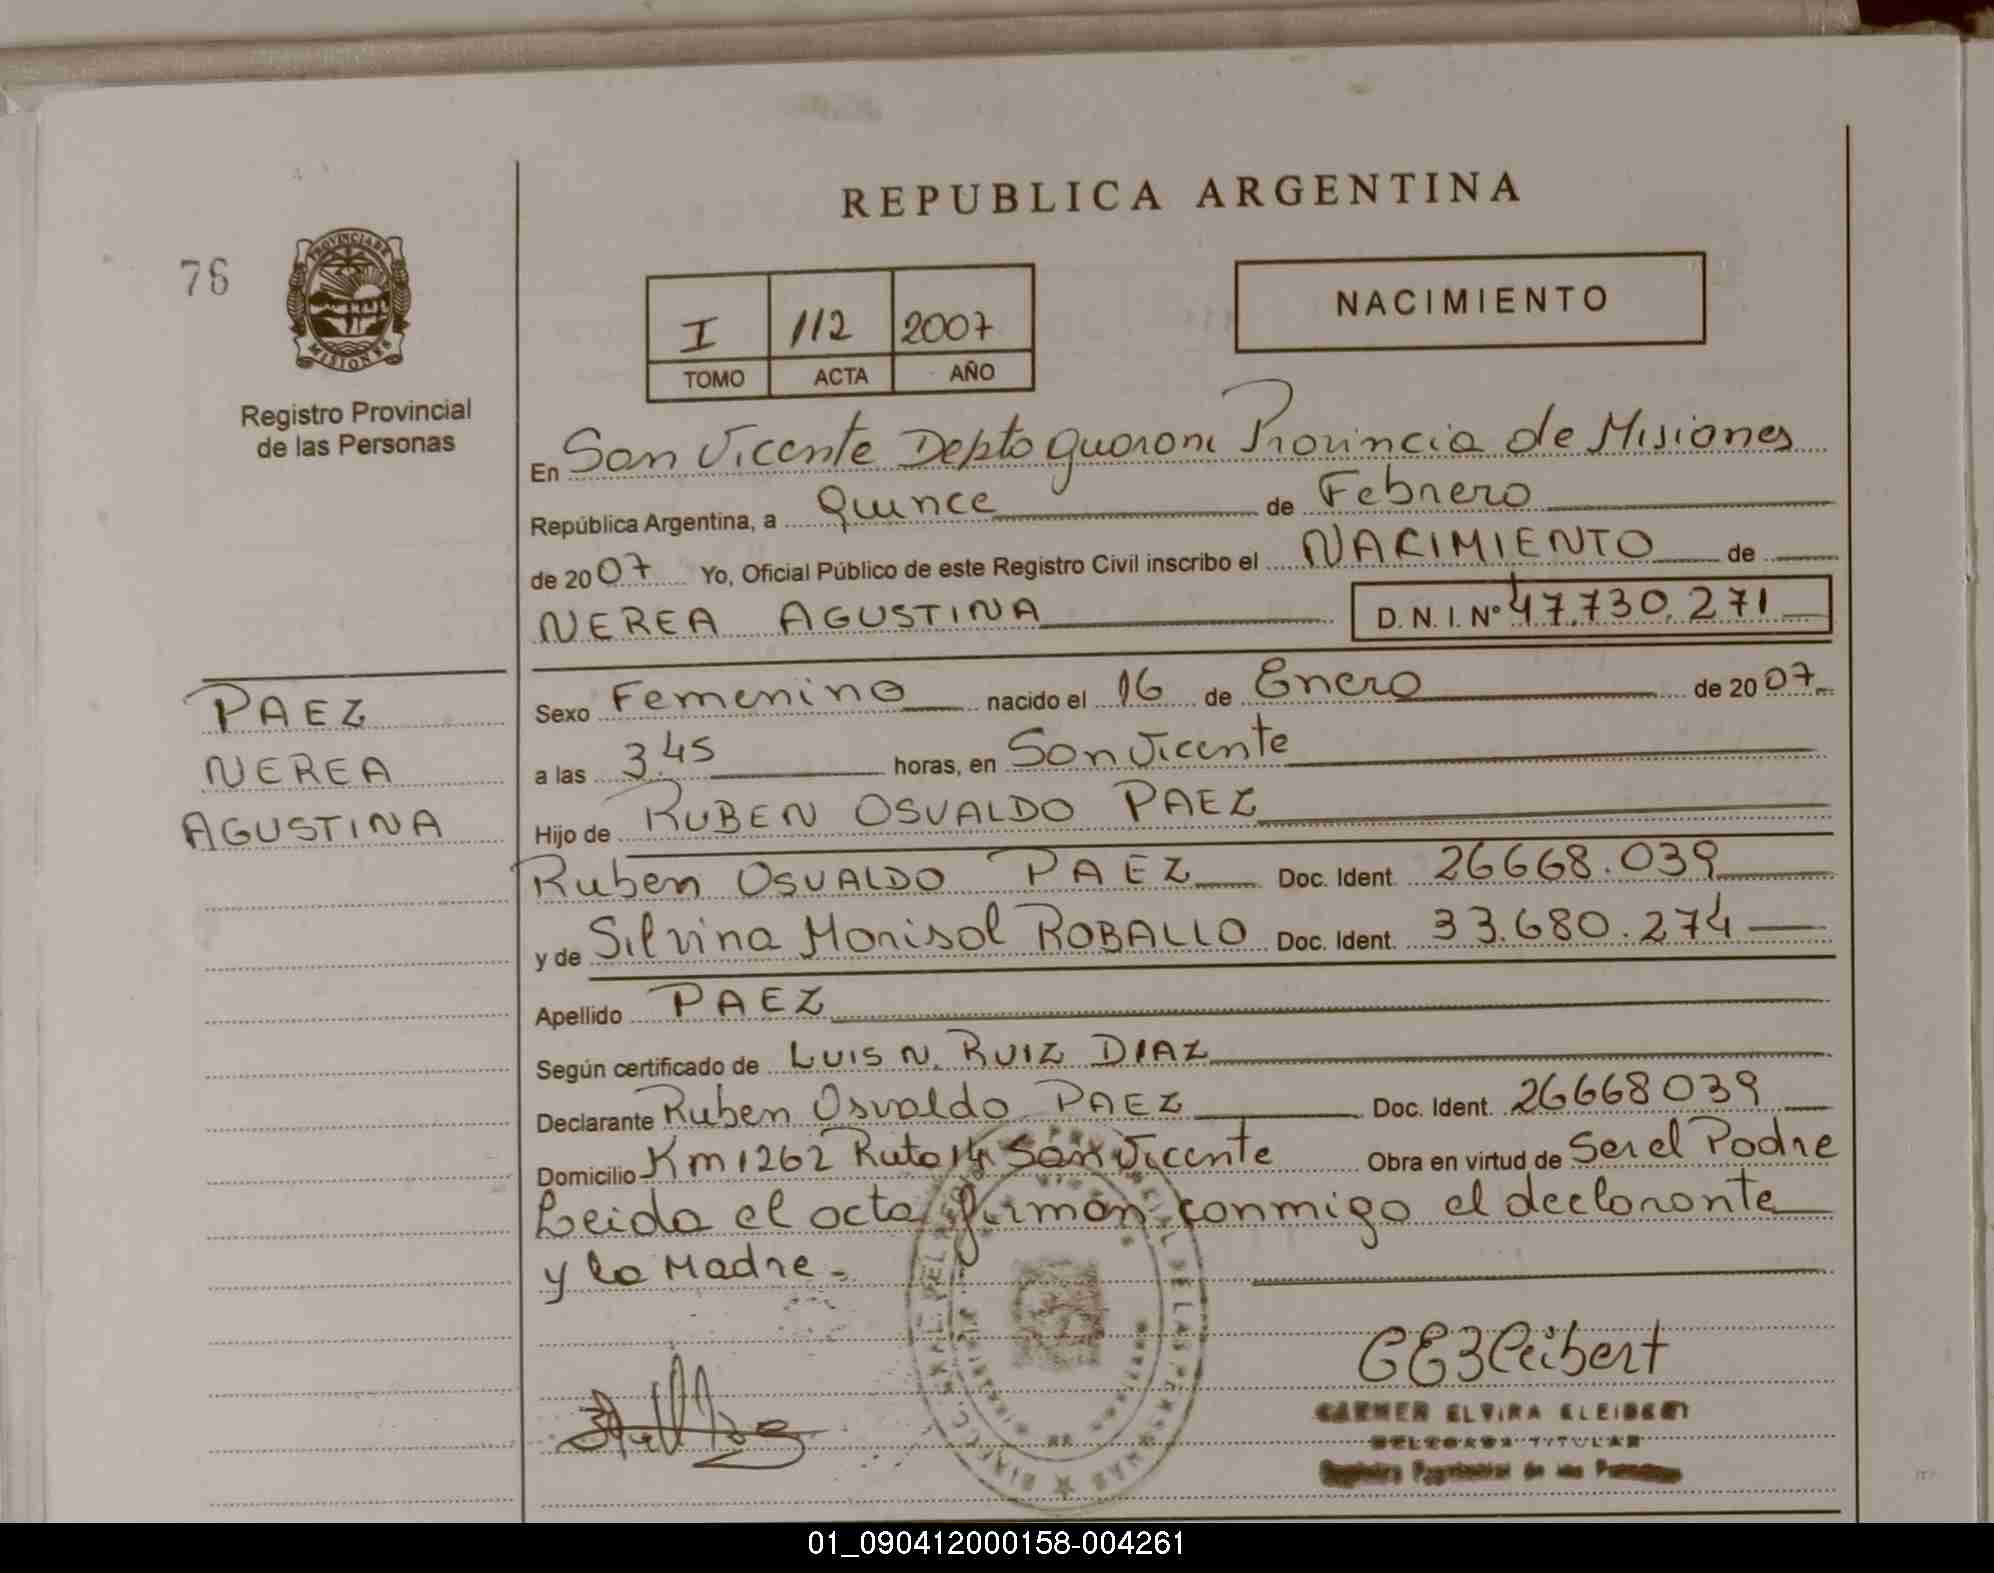 REPUBLICA ARGENTINA
76
PROVINCIA DE
MISIONES
Registro Provincial
de las Personas
I 112 2007
TOMO ACTA AÑO
NACIMIENTO
En San Vicente Depto Guarani Provincia de Misiones
República Argentina, a Quince de Febrero
de 2007 Yo, Oficial Público de este Registro Civil inscribo el NACIMIENTO de
NEREA AGUSTINA D. N. I. Nº 47.730.271
PAEZ
NEREA
AGUSTINA
Sexo Femenino nacido el 16 de Enero de 2007
a las 3.45 horas, en San Vicente
Hijo de RUBEN OSVALDO PAEZ
Ruben OSVALDO PAEZ Doc. Ident. 26668.039
y de Silvina Marisol ROBALLO Doc. Ident. 33.680.274
Apellido PAEZ
Según certificado de LUIS N. RUIZ DIAZ
Declarante Ruben Osvaldo PAEZ Doc. Ident. 26668039
Domicilio Km 1262 Ruta 14 San Vicente Obra en virtud de Ser el Padre
Leida el acta firman conmigo el declarante
y la Madre.-
CEZleibert
CARMEN ELVIRA ZLEIBERT
DELEGADA TITULAR
Registro Provincial de las Personas
01_090412000158-004261